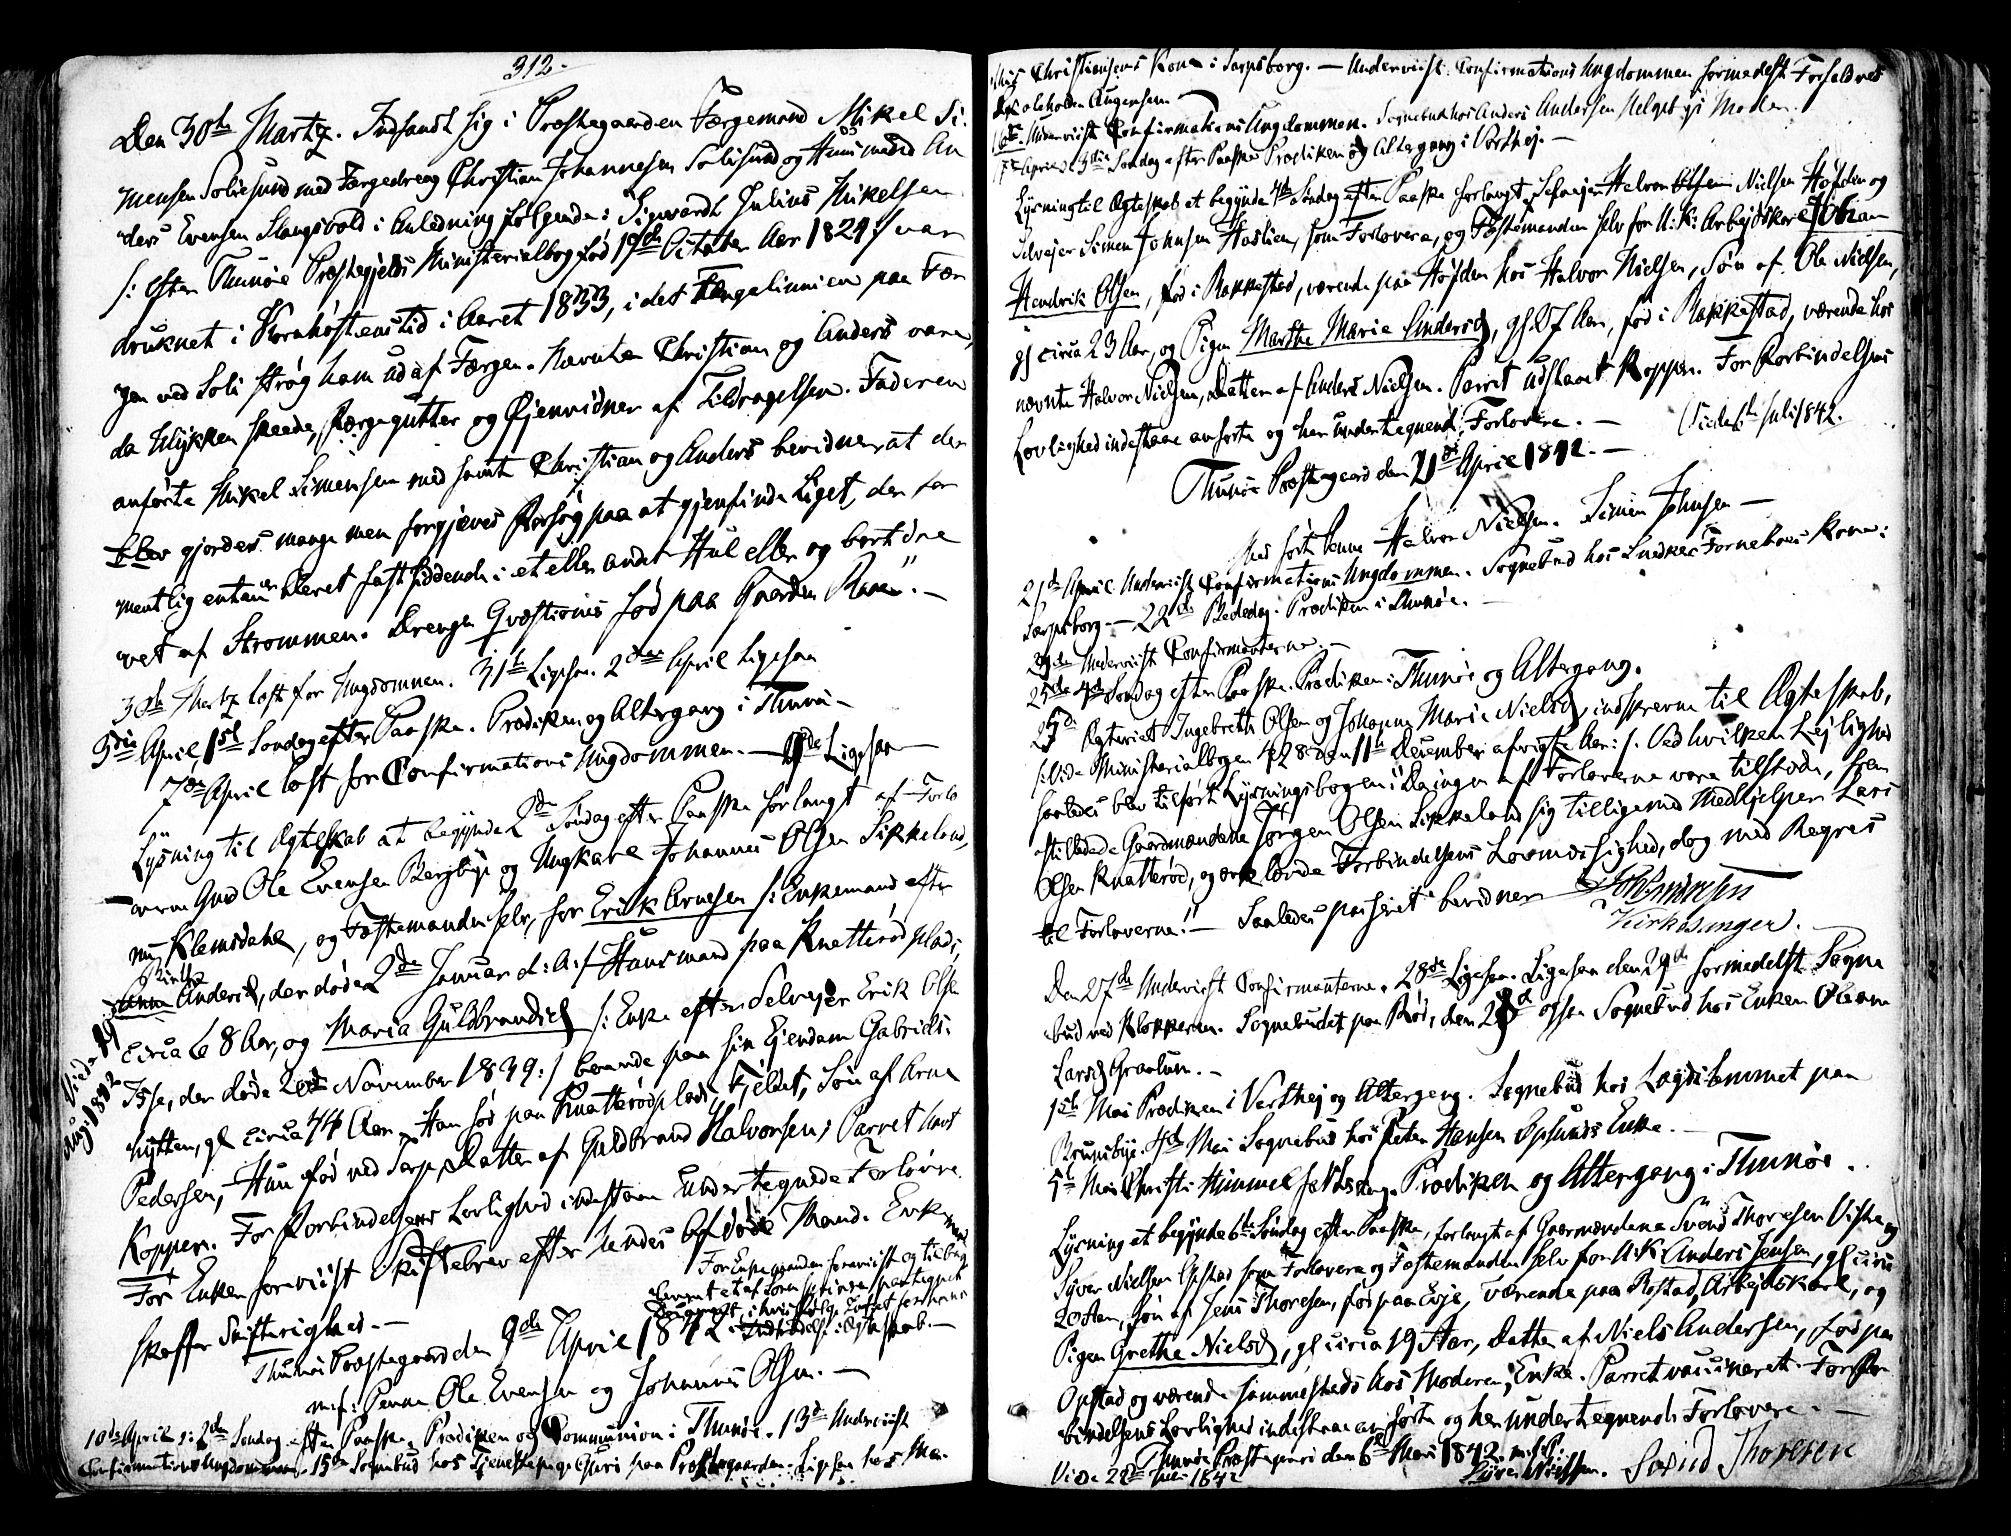 312.
Den 30th Martz. Indfandt sig i Præstegaarden Færgemand Mikel Si-
mensen Soliesund med Færgedreng Christian Johannesen Soliesund og Huusmand An
ders Evensen Slangsvold i Anledning følgende: Sigvardt Julius Mikelsen
/: efter Thunøe Præstegjelds Ministerialbog fød 19de October Aar 1824 :/ var
druknet i Kornhøstens tid i Aaret 1833, i det Færgelinnien paa Fær
gen ved Soli strøg ham ud af Færgen. Nævnte Christian og Anders vare,
da Ulykken skeede, Færgegutter og Øjenvidner af Tildragelsen. Faderen
anførte Mikel Simensen med samt Christian og Anders bevidner at der
blev gjordes mange men forgjeves Forsøg paa at gjenfinde Liget, der for
mentlig enten er bleret fast siddende i et eller andet Hul eller og bortdre
vet af Strømmen. Drengen Qvæstionis fød paa Gaarden Raae". —
30th Martz læst for Ungdommen. 31th Ligesaa. 2den April Ligesaa
3die April, 1st Søndag efter Paaske. Prædiken og Altergang i Thunøe —
7de April læst for Confirmations Ungdommen. — Ligesaa —
Lysning til Ægteskab at begynde 2den Søndag efter Paaske forlangt af Forlo
verne Gmd Ole Evensen Bergbye og Ungkarl Johannes Olsen Sikkeland,
nu Klemsdahl, og Fæstemanden selv, for Erik Arnesen /: Enkemand efter
Anne Andersd, der døde 2de Januar d: A: / Huusmand paa Knatterødplads,
circa 68 Aar, og Maria Guldbrandsd /: Enke efter Selvejer Erik Olsen
Isse, der døde November 1839 :/ boende paa sin Ejendom Gabriels-
hytten, gl circa 44 Aar. Han fød paa Knatterødplads, Kjeldet, Søn af Arne
Pedersen, Hun fød ved Sarp, Datter af Guldbrand Halvorsen; Parret havt
Kopper. For Forbindelsens Lovlighed indestaae undertegnede Forlovere
For Enken foreviist Skiftebrev efter hendes Afdøde Mand. Enkemand
skaffer Skifterighed. —
For Enkemanden foreviist og tilbag
Thunøe Præstegaard den 9de April 1842
i Indtrædelse i Ægteskab. —
m. f: Penne Ole Evensen og Johannes Olsen. —
Viede 19 Aug: 1842
10de April o: 2den Søndag efter Paaske. Prædiken og Communion i Thunøe. 13de Underviist
Confirmations Ungdommen. 15de Sognebud hos Tjenestepige Guri paa Præstegaarden. Ligesaa hos
Christiansens Kone i Sarpsborg. — Underviist Confirmations Ungdommen formedelst Forfaldnes
16de Underviist Confirmations Ungdommen. Sognebud hos Anders Andersen Helgebys Moder.
17de April 3die Søndag efter Paaske Prædiken og Altergang i Varthej. —
Lysning til Ægteskab at begynde 4de Søndag efter Paaske forlangt Selvejer Halvor Nielsen Høfden og
Selvejer Simen Johnsen Haslien, som Forlovere, og Fæstemanden selv for U: K: Arbejdskarl Johan
Hendrik Olsen, fød i Rakkestad, værende paa Høfden hos Halvor Nielsen, Søn af Ole Nielsen,
gl circa 23 Aar, og Pigen Marthe Marie Andersd, gl: 27 Aar, fød i Rakkestad, værende hos
nævnte Halvor Nielsen, Datter af Anders Nielsen. Parret udstaaet Kopper. For Forbindelsens
Lovlighed indestaae anførte og her undertegnende Forlovere. — Viede 6te Juli 1842.
Thunøe Præstegaard den 21de April 1842. —
Med ført Penne Halvor Nielsen. Simen Johnsen —
21de April Underviist Confirmations Ungdommen. Sognebud hos Snedker Fornebøes Kone i
Sarpsborg. — 22de Bededag. Prædiken i Thunøe. —
Underviist Confirmanterne. —
4de Søndag efter Paaske. Prædiken i Thunøe og Altergang.
25de Ægteviet Ingebreth Olsen og Johanne Marie Nielsd, indskrevne til Ægteskab,
/: Vide Ministerialbogen N 28 den 11te December afvigte Aar: /. Ved hvilken Lejlighed
saaledes blev tilført Lysningsbogen: "Da ingen af Forloverne vare tilstede, frem
stilledede Gaardmændene Jørgen Olsen Sikkeland sig tilligemed Medhjelper Lars
Olsen Knatterød, og erklærede Forbindelsens Lovmæssighed, dog med Regres
til Forloverne". — Saaledes passeret bevidner
Kirkesanger.
Den 27de Underviist Confirmanterne. 28de Ligesaa. Ligesaa den 29de formedelst Sogne
bud ved Klokkeren. Sognebudet paa Rød, den 28de ogsaa Sognebud hos Enken Oleane
Larsd Graalum. —
1ste Mai Prædiken i Varthej og Altergang. Sognebud hos Lægdslemmet paa
Bruunsbye. 4de Mai Sognebud hos Peter Hansen Opsunds Enke. —
5te Mai Christi Himmelfartsdag. Prædiken og Altergang i Thunøe.
Lysning at begynde 6te Søndag efter Paaske, forlangt af Gaardmændene Svend Thoresen Visther og
Syver Nielsen Opstad som Forlovere og Fæstemanden selv for U: K: Anders Jensen, gl circa
20 Aar, Søn af Jens Thoresen, fød paa Evje, værende paa Rostad, Arbejdskarl, og
Pigen Grethe Nielsd, gl circa 19 Aar, Datter af Niels Andersen, fød paa
Opstad og værende sammesteds hos Moderen, Enke. Parret vaccineret. For For
bindelsens Lovlighed indestaae anførte og her undertegnende Forlovere. —
Thunøe Præstegaard den 6te Mai 1842 m. f. P:
Viede 22de Juli 1842 Syver Nielsen. Svend Thoresen